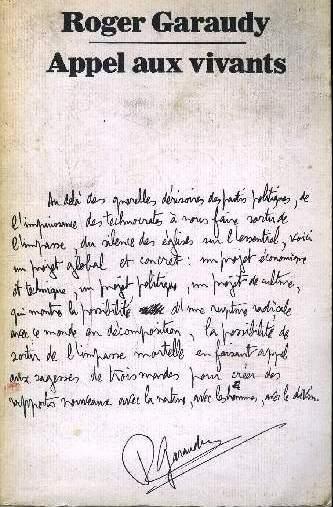 Roger Garaudy
Appel aux vivants
Au delà des querelles dérisoires des partis politiques, de
l'impuissance des technocrates à nous faire sortir de
l'impasse, du silence des églises sur l'essentiel, voici
un projet global et concret : un projet économique
et technique, un projet politique, un projet de culture,
qui montre la possibilité d'une rupture radicale
avec ce monde en décomposition, la possibilité de
sortir de l'impasse mortelle en faisant appel
aux sagesses de trois mondes pour créer des
rapports nouveaux avec la nature, avec les hommes, avec le divin.
R Garaudy